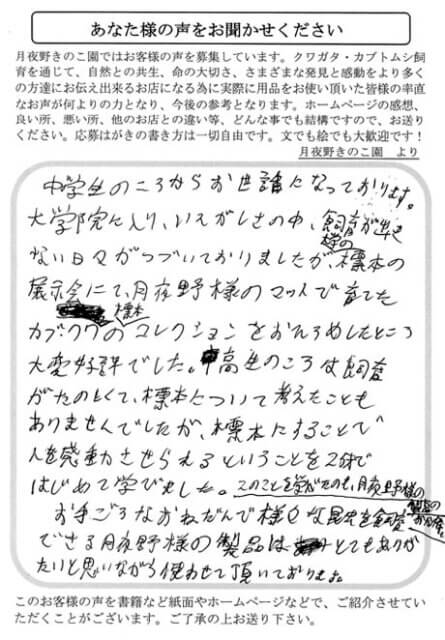 あなた様の声をお聞かせください
月夜野きのこ園ではお客様の声を募集しています。クワガタ・カブトムシ飼
育を通じて、自然との共生、命の大切さ、さまざまな発見と感動をより多く
の方達にお伝え出来るお店になる為に実際に用品をお使い頂いた皆様の率直
なお声が何よりの力となり、今後の参考となります。ホームページの感想、
良い所、悪い所、他のお店との違い等、どんな事でも結構ですので、お送り
ください。応募はがきの書き方は一切自由です。文でも絵でも大歓迎です！
月夜野きのこ園 より
中学生のころからお世話になっております。
大学院に入り、いそがしさの中、飼育が出来
ない日々がつづいておりましたが、様の標本の
展示会にて、月夜野様のマットで育てた
カブクワの標本コレクションをおひろめしたところ
大変好評でした。中高生のころは飼育
がたのしくて、標本について考えたことも
ありませんでしたが、標本にすることで
人を感動させられるということを
はじめて学びました。このことを学べたのも、月夜野様の製品のお陰。
お手ごろなおねだんで様々な昆虫を飼育
できる月夜野様の製品はとてもありが
たいと思いながら使わせて頂いております。
このお客様の声を書籍など紙面やホームページなどで、ご紹介させてい
ただくことがございます。ご了承の上お送り下さい。